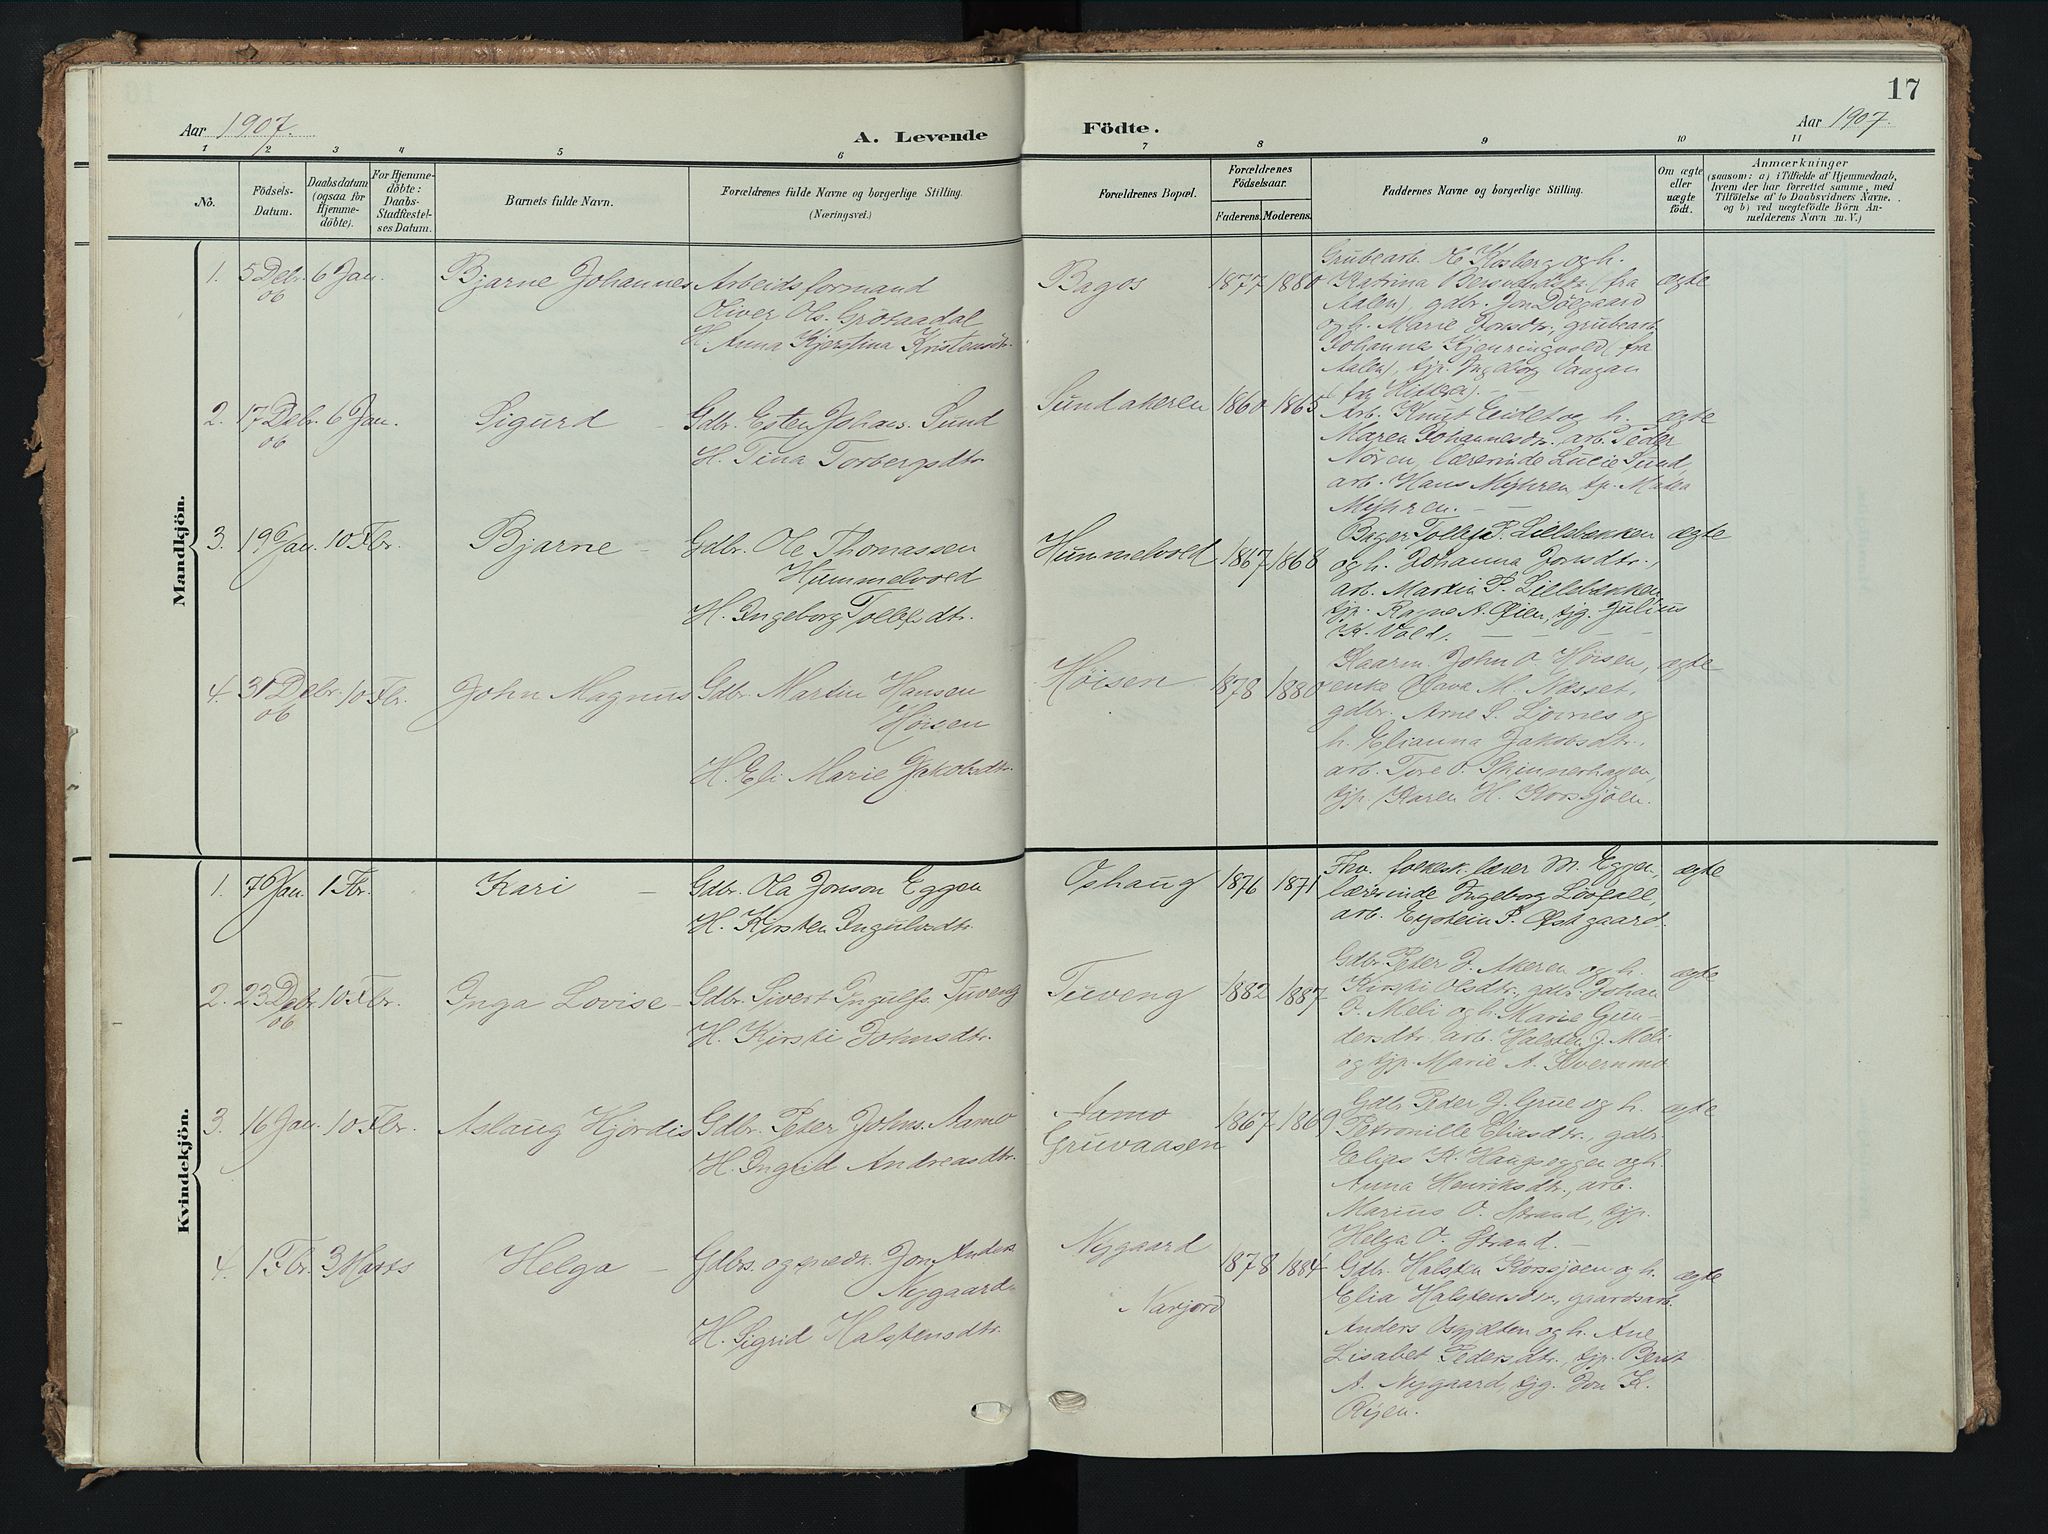 17
Aar 1907.
A. Levende
Födte.
Aar 1907.
1 2 3 4 5 6 7 8 9 10 11
No.
Födsels-
Datum.
Daabsdatum
(ogsaa for
Hjemme-
döbte).
For Hjemme-
döbte:
Daabs-
Stadfæstel-
ses Datum.
Barnets fulde Navn.
Forældrenes fulde Navne og borgerlige Stilling.
(Næringsvei.)
Forældrenes Bopæl.
Forældrenes
Födselsaar.
Faderens. Moderens.
Faddernes Navne og borgerlige Stilling.
Om ægte
eller
uægte
födt.
Anmærkninger
(saasom: a) i Tilfælde af Hjemmedaab,
hvem der har forrettet samme, med
Tilföielse af to Daabsvidners Navne.
og b) ved uægtefödte Börn An-
melderens Navn m. V.)
Mandkjön.
1. 5 Debr. 06 6 Jan. Bjarne Johannes
Arbeidsformand
Oliver Ols. Grötaadal
H. Anna Kjerstina Kristensdtr.
Bagos 1877 1880
Grubearb. H. Kosberg og h.
Katrina Bersvendsdtr. (fra
Aalen), gdbr. Jon Döegaard
og h. Marie Jonsdr., grubearb.
Johannes Kjenringvold (fra
Aalen), tjp. Ingeborg Vaagan
(fra Hitteren). —
ægte
2. 17 Debr. 06 6 Jan. Sigurd —
Gdbr. Esten Johans. Sund
H. Tina Torbergsdtr.
Sundakeren 1860 1865
Arb. Knut Eidet og h.
Maren Johannesdr., arb. Peder
Nören, lærerinde Lucie Sund,
arb. Hans Myhren tjp. Malea
Myhren. — —
ægte
3. 19 Jan. 10 Fbr. Bjarne —
Gdbr. Ole Thomassen
Hummelvold
H. Ingeborg Tollefsdtr.
Hummelvold 1867 1868
Bager Tollef P. Lillebækken
og h. Johanna Jonsdtr.,
arb. Martin P. Lillebækken
tjp. Ragne A. Öien, tjg. Julius
K. Vold. — — — —
ægte
4. 31 Debr. 06 10 Fbr. John Magnus
Gdbr. Martin Hansen
Höisen
H. Eli Marie Jakobsdtr.
Höisen 1878 1880
Kaarm. John O. Höisen,
enke Olava M. Næsset,
gdbr. Arne S. Lövnes og
h. Elianna Jakobsdtr.,
arb. Tore O. Skinnerhagen,
tjp. Karen H. Korssjöen.
ægte
Kvindekjön.
1. 7 Jan. 1 Fbr. Kari —
Gdbr. Ola Jonson Eggen
H. Kirsten Ingulvsdtr.
Oshaug 1876 1871
Fhv. folkesk. lærer M. Eggen,
lærerinde Ingeborg Lövfall,
arb. Eystein P. Östgaard.
ægte
2. 23 Debr. 06 10 Fbr. Inga Lovise —
Gdbr. Sivert Ingulfs. Tuveng
H. Kirsti Johnsdtr.
Tuveng 1882 1887
Gdbr. Peter J. Akeren og h.
Kirsti Olsdtr., gdbr. Johan
J. Meli og h. Marie Gun-
dersdtr., arb. Halsten J. Meli
og tjp. Marie A. Kvernmo.
ægte
3. 16 Jan. 10 Fbr. Aslaug Hjördis
Gdbr. Peter Johns. Aamo
H. Ingrid Andreasdtr.
Aamo
Gruvaasen
1867 1869
Gdbr. Peder J. Grue og h.
Petronille Eliasdtr., gdbr.
Elias K. Haugseggen og h.
Anna Henriksdtr., arb.
Marius O. Strand, tjp.
Helga O. Strand. —
ægte
4. 1 Fbr. 3 Marts Helga —
Gdbrs. og snedk. Jon Anders.
Nygaard
H. Sigrid Halstensdtr.
Nygaard
Narjord
1878 1884
Gdbr. Halsten Korssjöen og h.
Elia Halstensdtr., gaardsarb.
Anders Osgjelten og h. Ane
Lisabet Pedersdtr., tjp. Berit
A. Nygaard, tjg. Jon K.
Riyen.
ægte